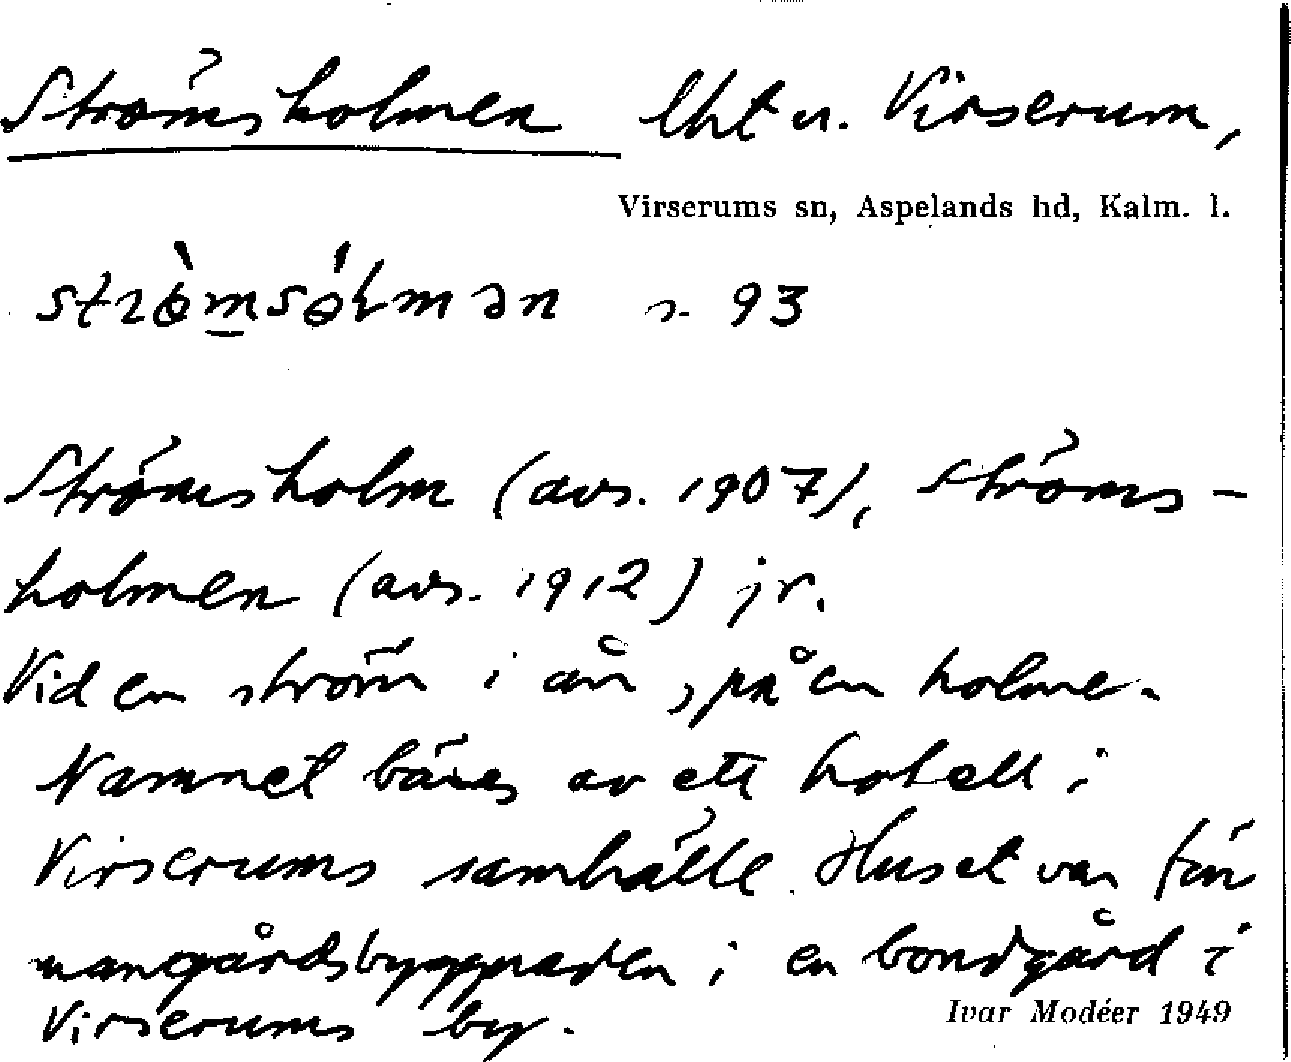 Strömsholmen lht u. Virserum,
Virserums sn, Aspelands hd, Kalm. l.
strø̀msólmən s. 93
Strömsholm (avs. 1907), Ströms-
holmen (avs. 1912) jr.
Vid en ström i ån, på en holme.
Namnet bäres av ett hotell i
Virserums samhälle. Huset var förr
mangårdsbyggnaden i en bondgård i
Virserums by.
Ivar Modéer 1949